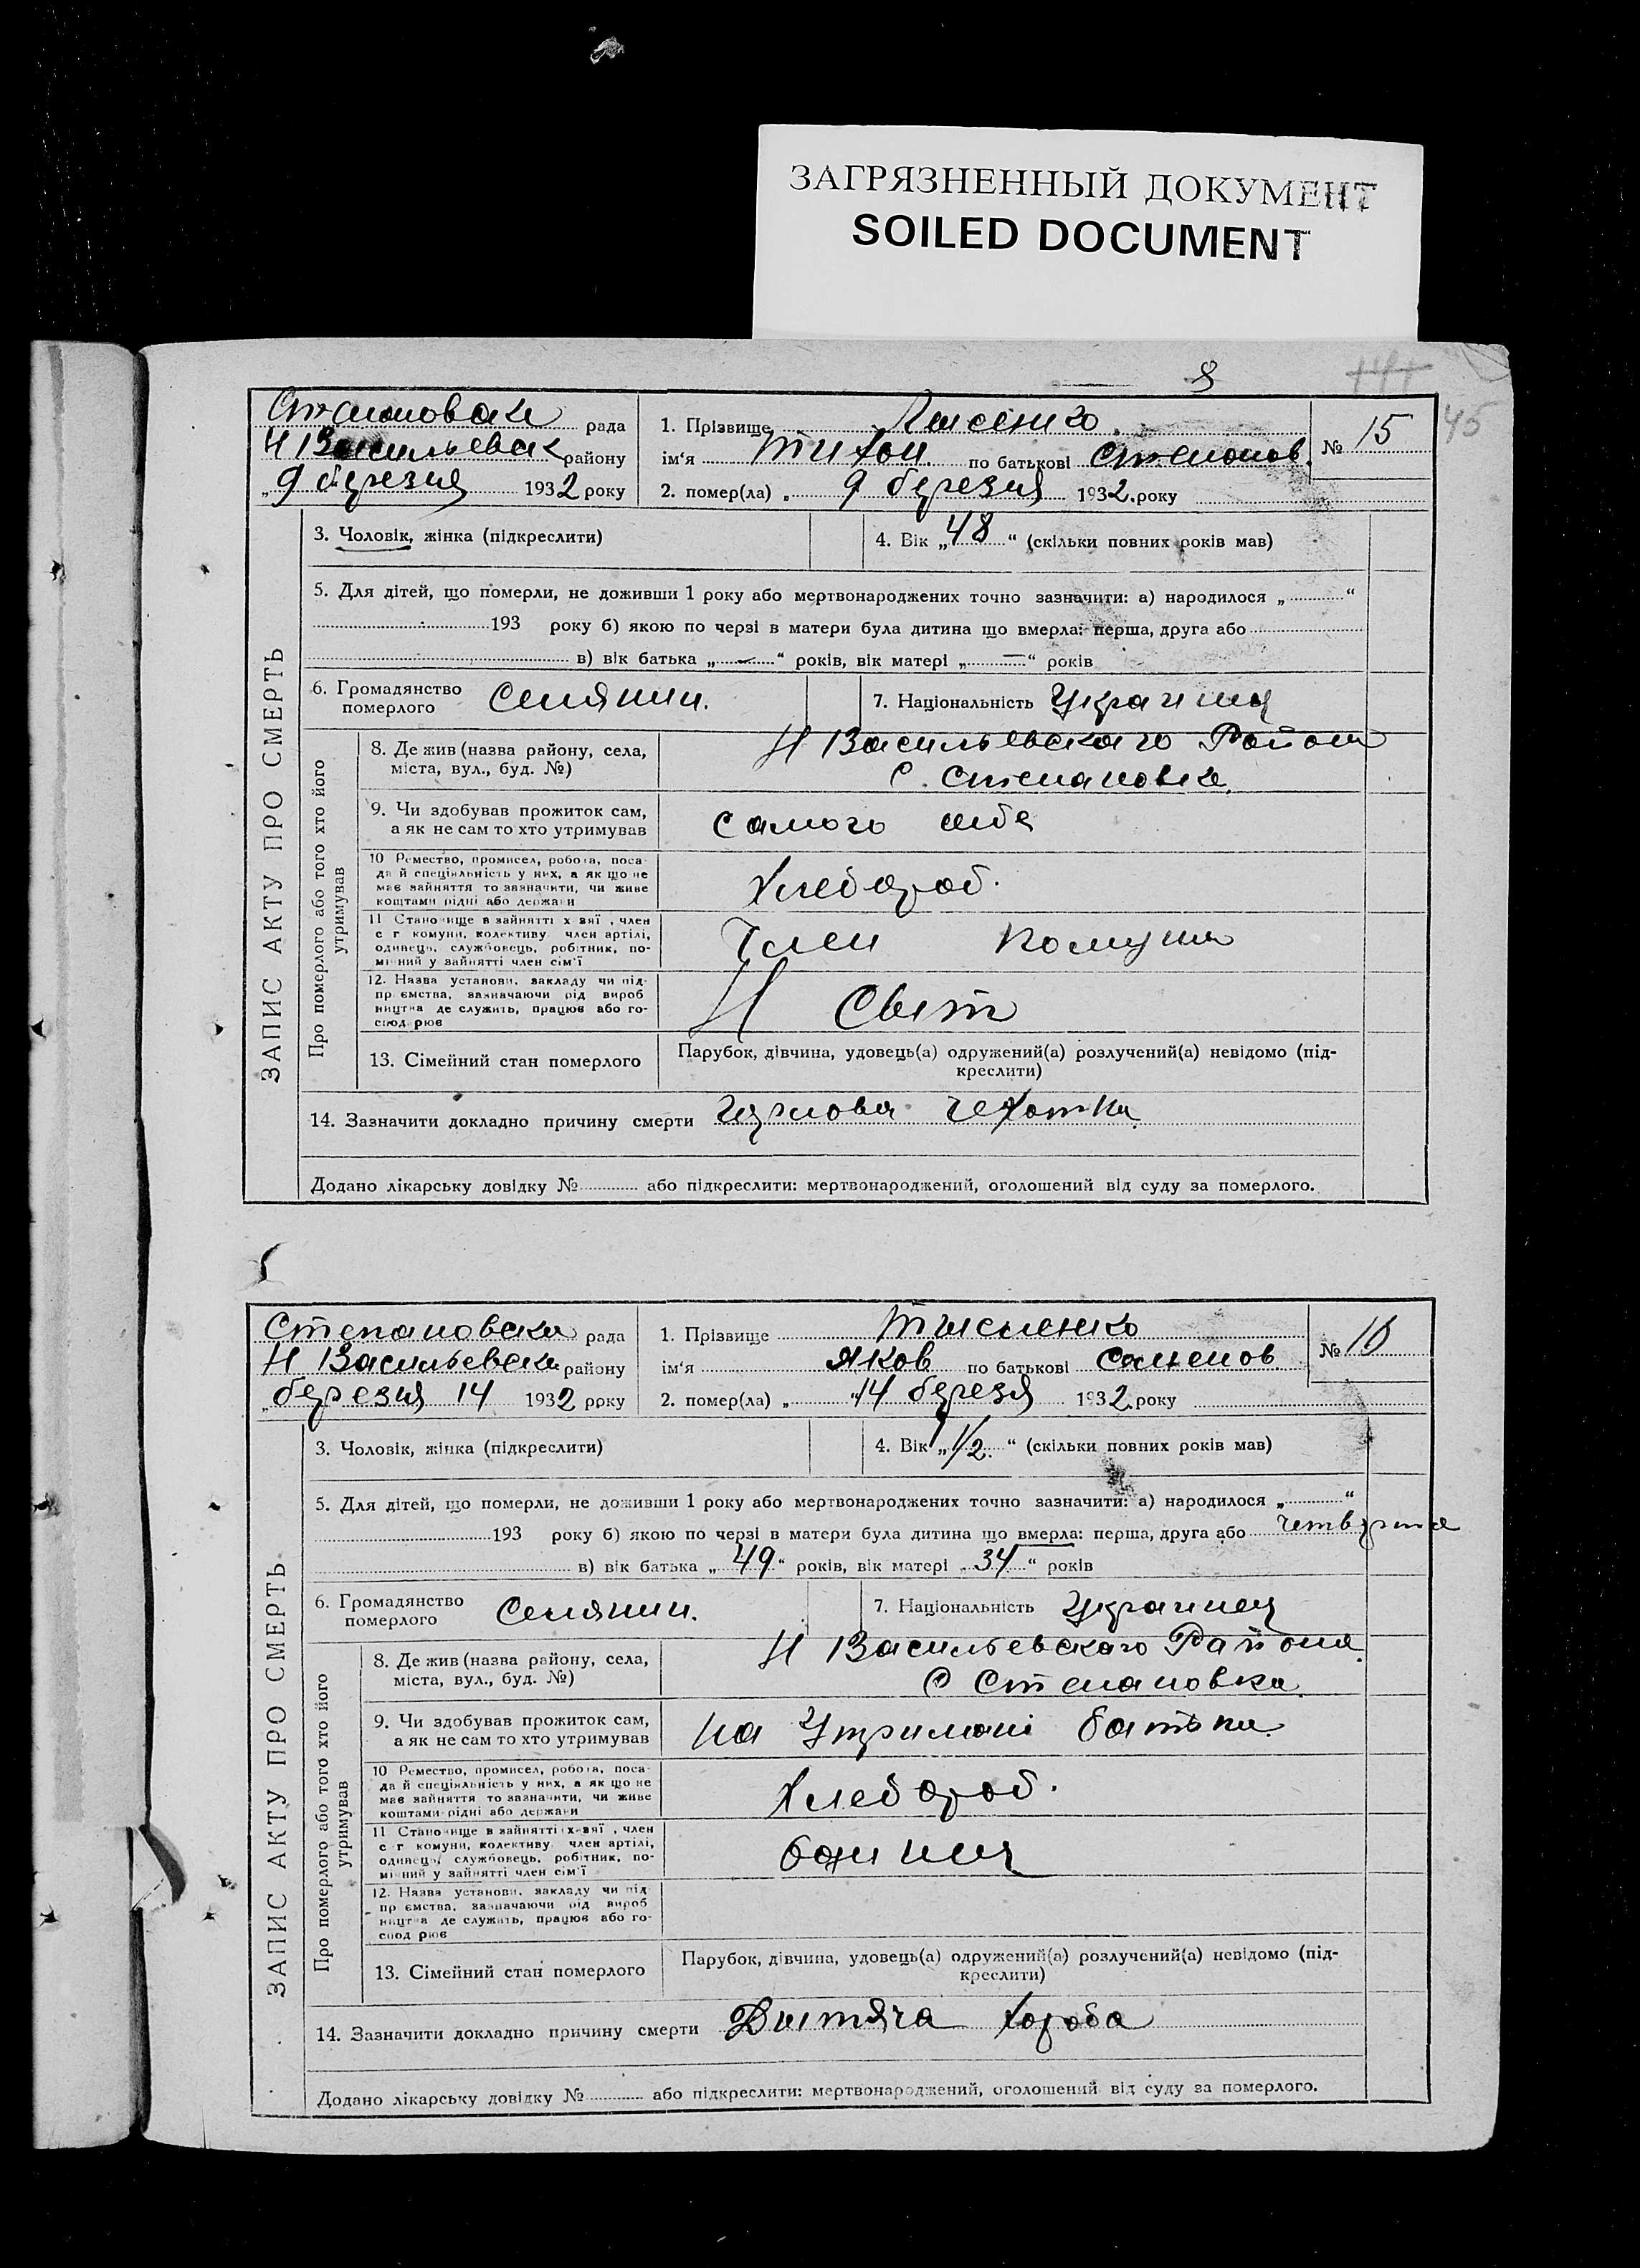 ЗАГРЯЗНЕННЫЙ ДОКУМЕНТ
SOILED DOCUMENT
8
45
рада
Н Васильевск району
„9 березня 1932 року
1. Прізвище Лисенко
ім‘я Тихон по батькові Степанов.
№ 15
2. помер(ла) „ 9 березня 1932 року
ЗАПИС АКТУ ПРО СМЕРТЬ
3. Чоловік, жінка (підкреслити)
4. Вік „48“ (скільки повних років мав)
5. Для дітей, що померли, не доживши 1 року або мертвонароджених точно зазначити: а) народилося „ “
193 року б) якою по черзі в матери була дитина що вмерла: перша, друга або
в) вік батька „—“ років, вік матері „—“ років
6. Громадянство померлого Селянин.
7. Національність
Про померлого або того хто його утримував
8. Де жив (назва району, села, міста, вул., буд. №)
Н Васильевскаго Района
С. Степановка.
9. Чи здобував прожиток сам, а як не сам то хто утримував
самого себе
10 Ремество, промисел, робота, посада й спеціяльність у них, а як що не має зайняття то зазначити, чи живе коштами рідні або держави
Хлебороб.
11 Становище в зайнятті х-вяї, член с г комуни, колективу член артілі, одинець, службовець, робітник, помічний у зайнятті член сім‘ї
Член Комуни
12. Назва установи, закладу чи підпр ємства, зазначаючи рід виробництва де служить, працює або господ рює
Н Свет
13. Сімейний стан померлого
Парубок, дівчина, удовець(а) одружений(а) розлучений(а) невідомо (підкреслити)
14. Зазначити докладно причину смерти чехотка
Додано лікарську довідку № або підкреслити: мертвонароджений, оголошений від суду за померлого.
Степановска рада
Н Васильевска району
„березня 14 1932 року
1. Прізвище
ім‘я Яков по батькові Семенов
№ 16
2. помер(ла) „14 березя 1932 року
ЗАПИС АКТУ ПРО СМЕРТЬ
3. Чоловік, жінка (підкреслити)
4. Вік „1 1/2“ (скільки повних років мав)
5. Для дітей, що померли, не доживши 1 року або мертвонароджених точно зазначити: а) народилося „ “
193 року б) якою по черзі в матери була дитина що вмерла: перша, друга або четверта
в) вік батька „49“ років, вік матері „34“ років
6. Громадянство померлого Селянин.
7. Національність Украинец
Про померлого або того хто його утримував
8. Де жив (назва району, села, міста, вул., буд. №)
Н Васильевскаго Района
С Степановка.
9. Чи здобував прожиток сам, а як не сам то хто утримував
на Утримані батька
10 Ремество, промисел, робота, посада й спеціяльність у них, а як що не має зайняття то зазначити, чи живе коштами рідні або держави
Хлебороб.
11 Становище в зайнятті х-вяї, член с г комуни, колективу член артілі, одинець, службовець, робітник, помічний у зайнятті член сім‘ї
12. Назва установи, закладу чи підпр ємства, зазначаючи рід виробництва де служить, працює або господ рює
13. Сімейний стан померлого
Парубок, дівчина, удовець(а) одружений(а) розлучений(а) невідомо (підкреслити)
14. Зазначити докладно причину смерти Дитяча хороба
Додано лікарську довідку № або підкреслити: мертвонароджений, оголошений від суду за померлого.